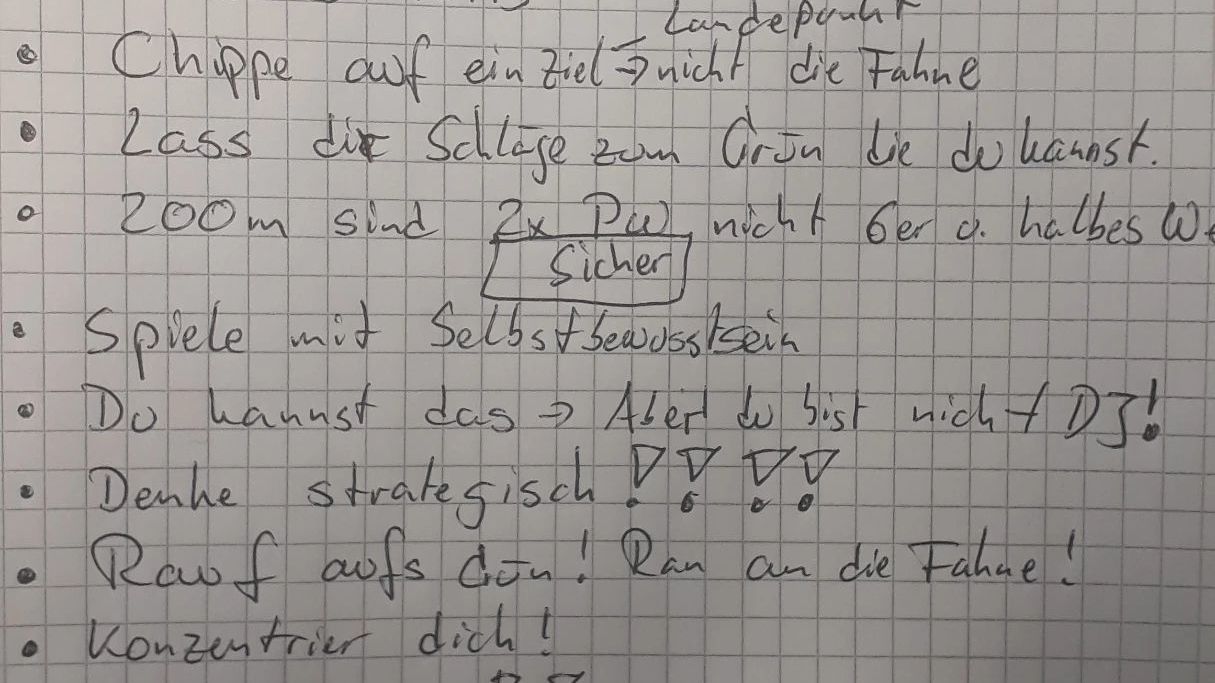 Landepunkt
• Chippe auf ein Ziel → nicht die Fahne
• Lass die Schläge zum Grün die du kannst.
• 200m sind 2x PW nicht 6er o. halbes W
Sicher
• Spiele mit Selbstbewusstsein
• Du kannst das → Aber du bist nicht DJ!
• Denke strategisch !!!!
• Rauf aufs Grün! Ran an die Fahne!
• Konzentrier dich!